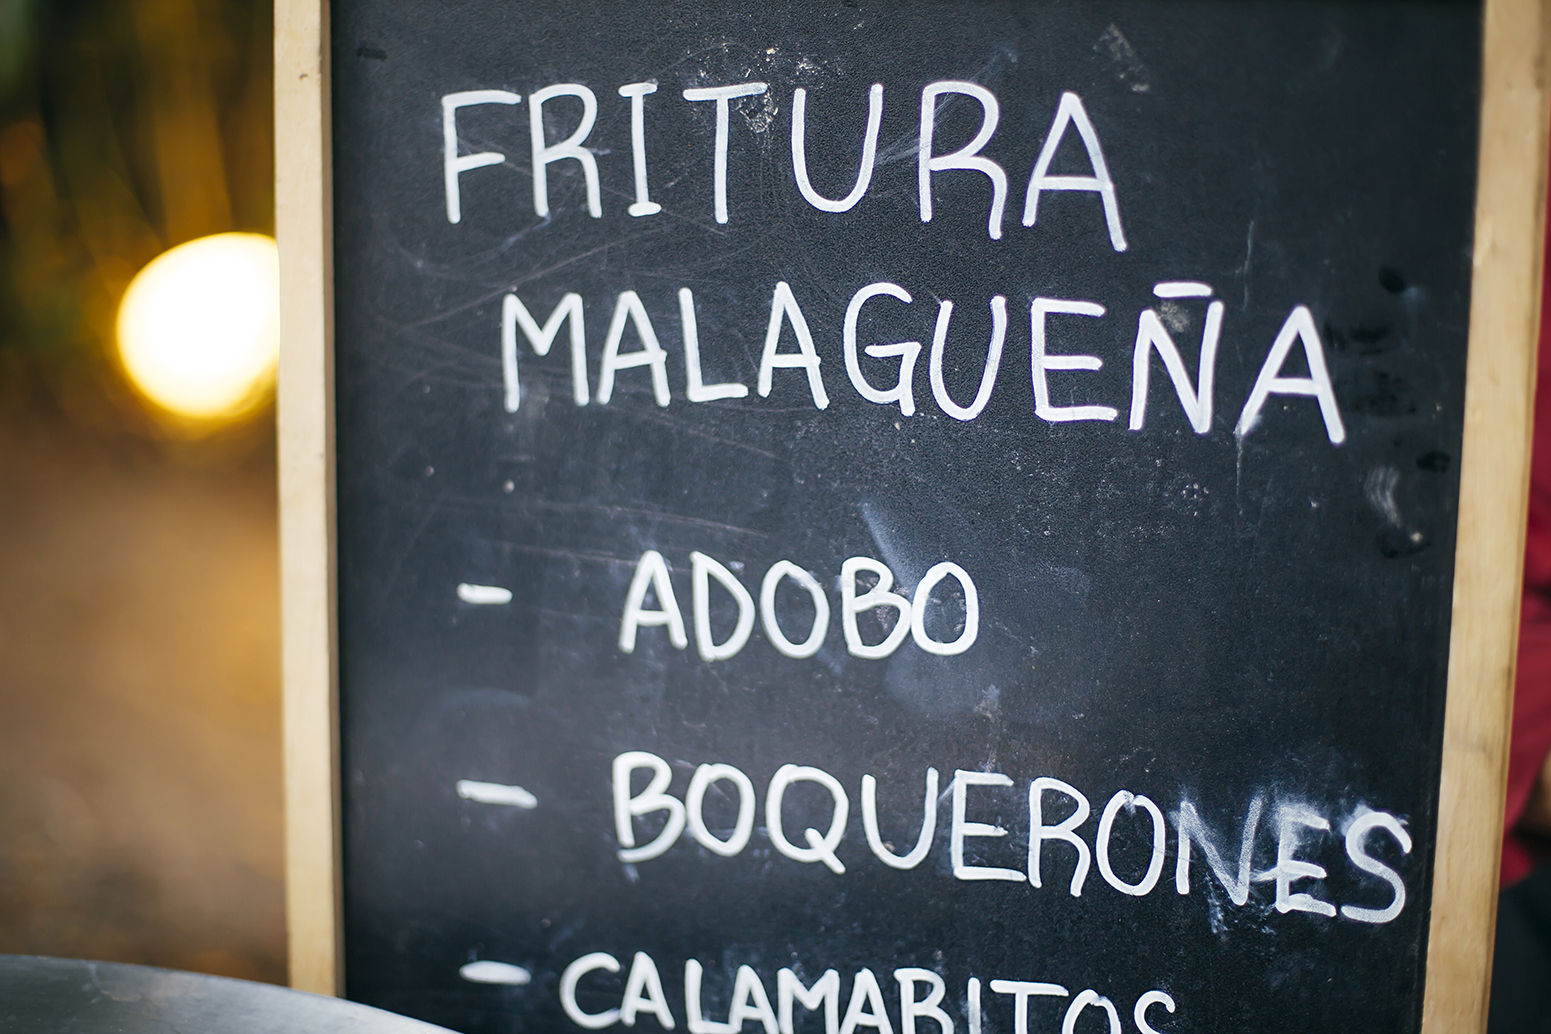 FRITURA
MALAGUEÑA
- ADOBO
- BOQUERONES
- CALAMARITOS